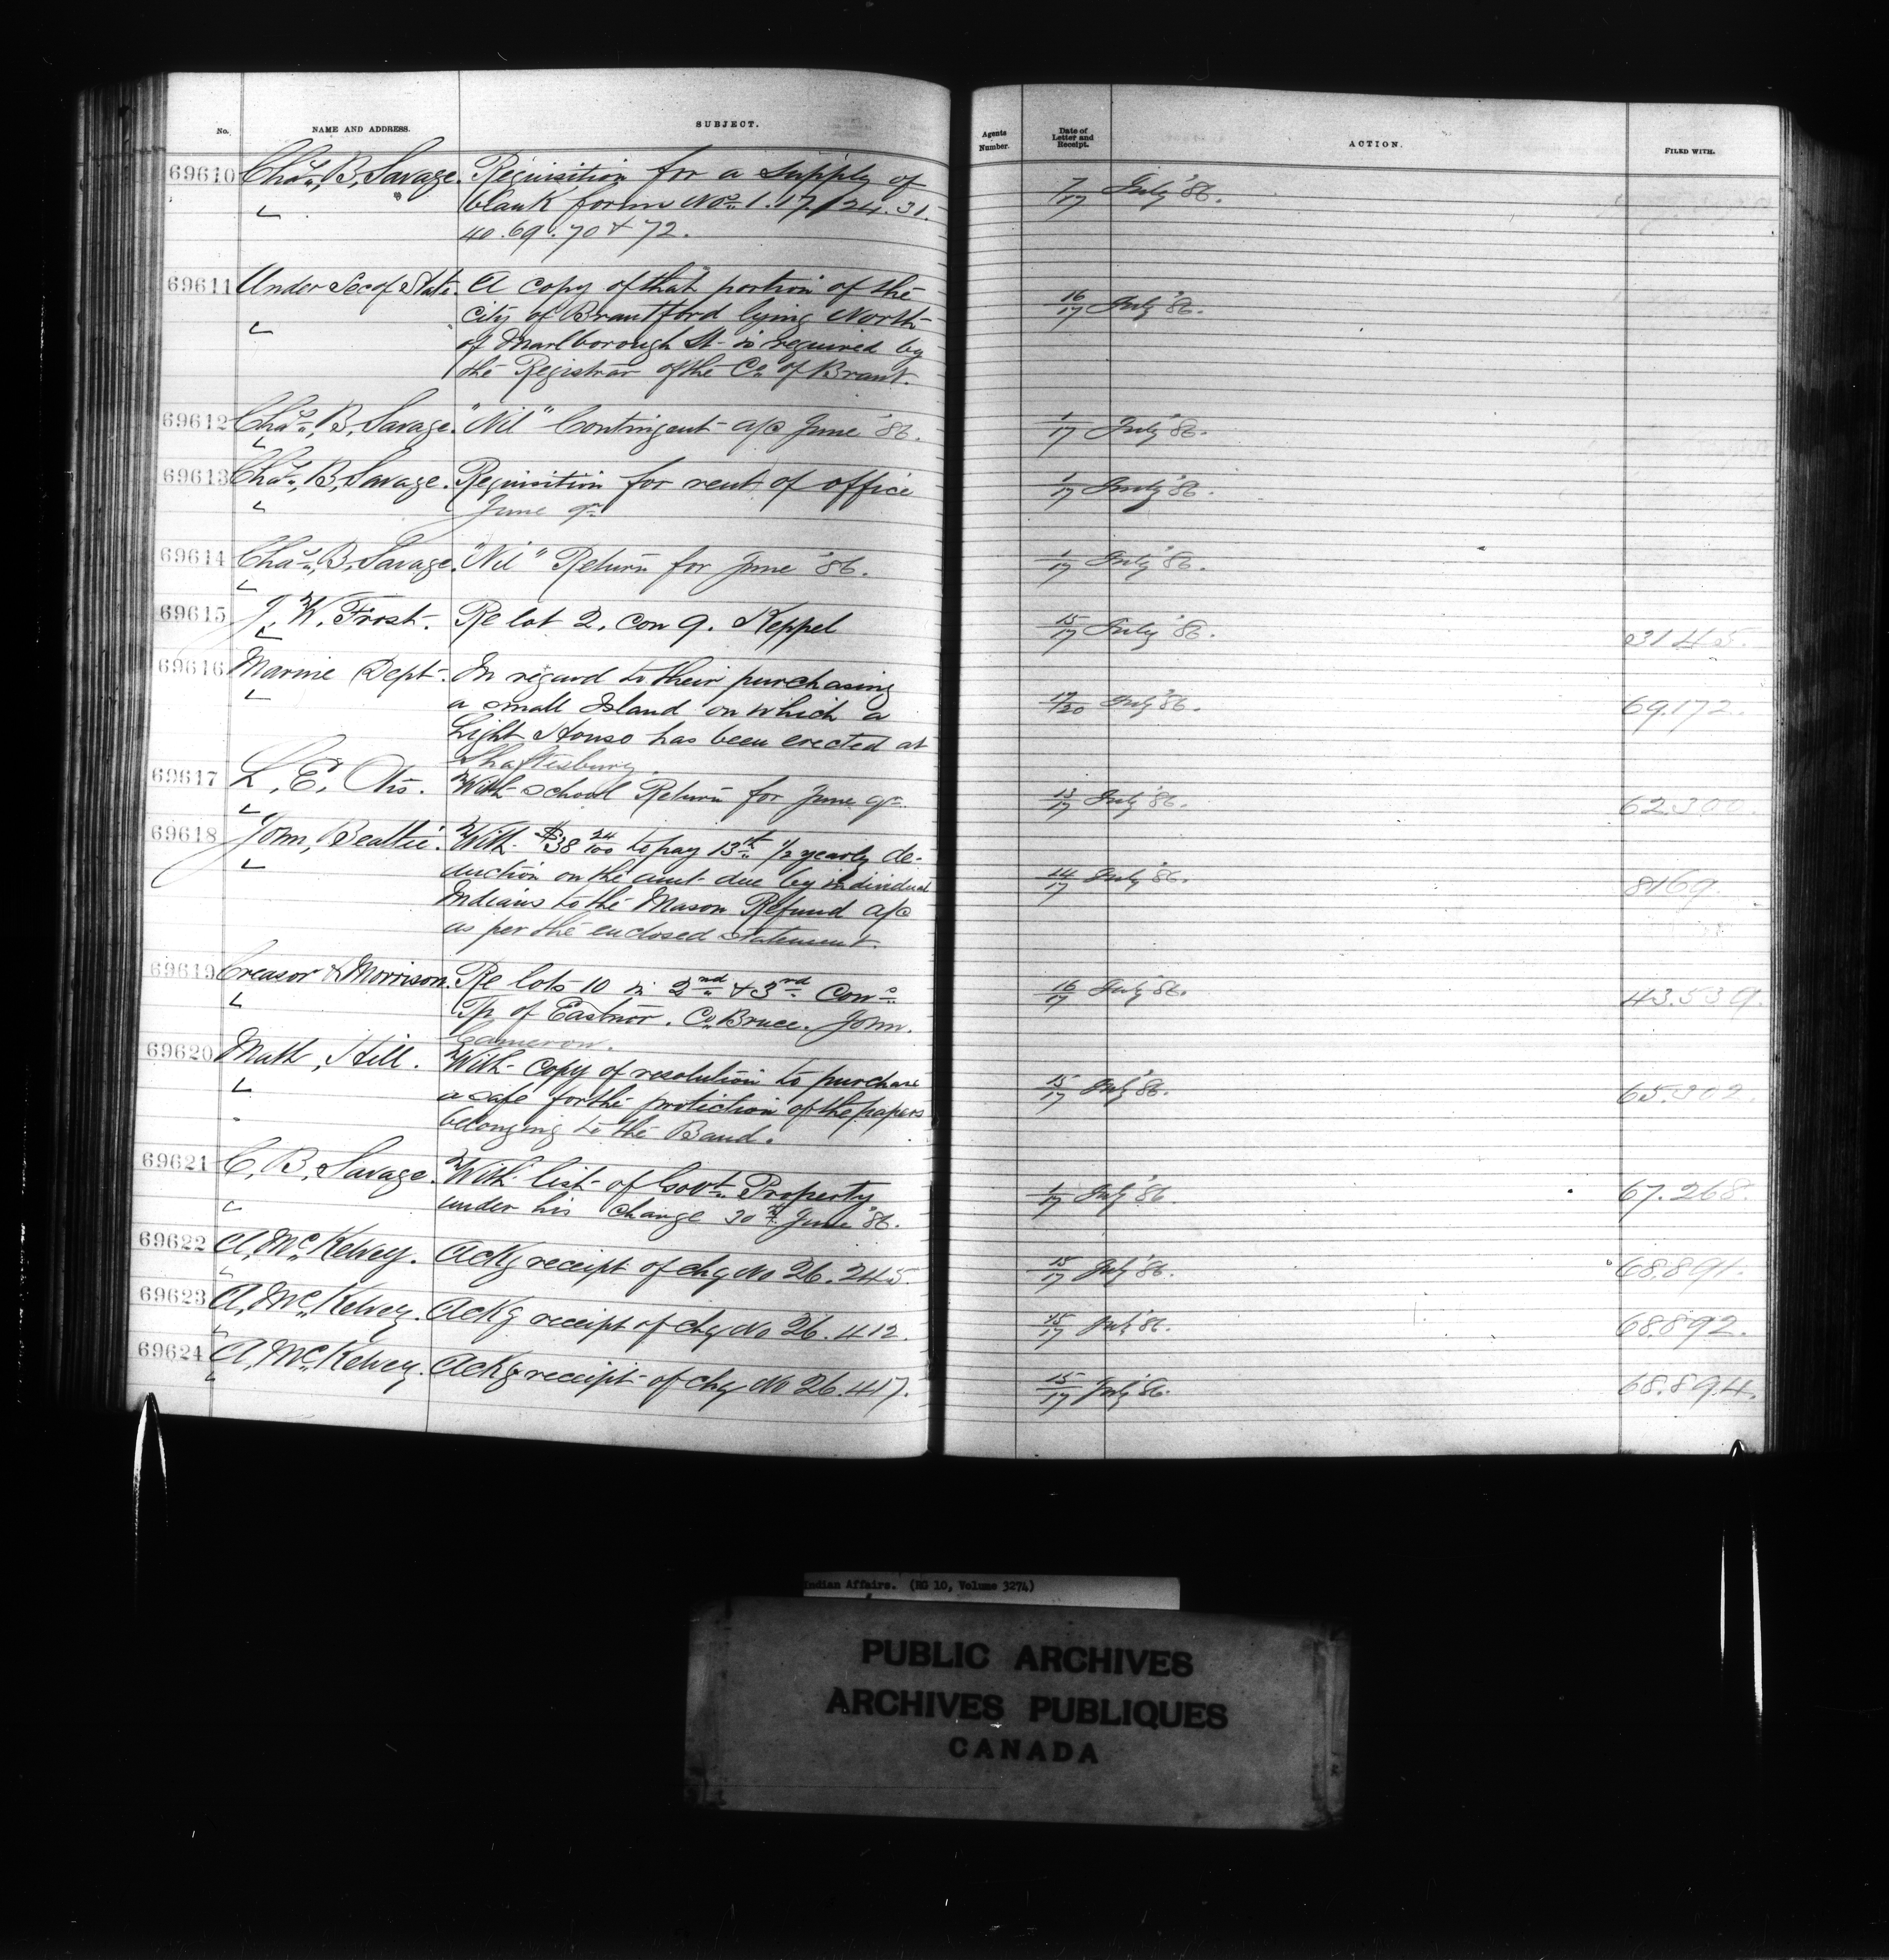 No. NAME AND ADDRESS. SUBJECT. Agents Number. Date of Letter and Receipt. ACTION. FILED WITH.
69610 Chas., B, Savage. Requisition for a supply of 7/17 July '86.
blank form Nos. 1. 17. 24. 31.
40. 69. 70 & 72.
69611 Under Sec of State. A copy of that portion of the 16/17 July '86.
City of Brantford lying North
of Marlborough St- is required by
the Registrar of the Co. of Brant.
69612 Chas., B, Savage. "Nil" Contingent a/c June '86. 1/17 July '86.
69613 Chas., B, Savage. Requisition for rent of office 1/17 July '86.
June qr.
69614 Chas., B, Savage. "Nil" Return for June '86. 1/17 July '86.
69615 J, W, Frost-. Re lot 2, con 9. Keppel 15/17 July '86. 3145.
69616 Marine Dept-. In regard to their purchasing 17/20 July '86. 69.172.
a small Island on which a
Light House has been erected at
Shaftesbury
69617 L, E, With school Return for June qr. 13/17 July '86. 62.300
69618 John, Beattie. With $38 24/100 to pay 13th 1/2 yearly de- 14/17 July '86. 8169.
duction on the amt- due by individual
Indians to the Mason Refund a/c
as per the enclosed statement.
69619 Creasor & Morrison. Re lots 10 in 2nd & 3rd Cons. 16/17 July '86. 43.539.
Tp of Eastnor. Co Bruce. John.
Cameron.
69620 Math, Hill. With copy of resolution to purchase 15/17 July '86. 65.302.
a safe for the protection of the papers
belonging to the Band.
69621 C, B, Savage. With list- of Govt. Property 1/17 July '86 67.268.
under his charge 30th June '86.
69622 A, Mc Kelvey. Ackg receipt of chq No 26.245. 15/17 July '86. 68.891.
69623 A, Mc Kelvey. Ackg receipt of chq No 26.412. 15/17 July '86. 68.892.
69624 A, Mc Kelvey. Ackg receipt of chq No 26.417. 15/17 July '86. 68.894.
Indian Affairs. (RG 10, Volume 3274)
PUBLIC ARCHIVES
ARCHIVES PUBLIQUES
CANADA